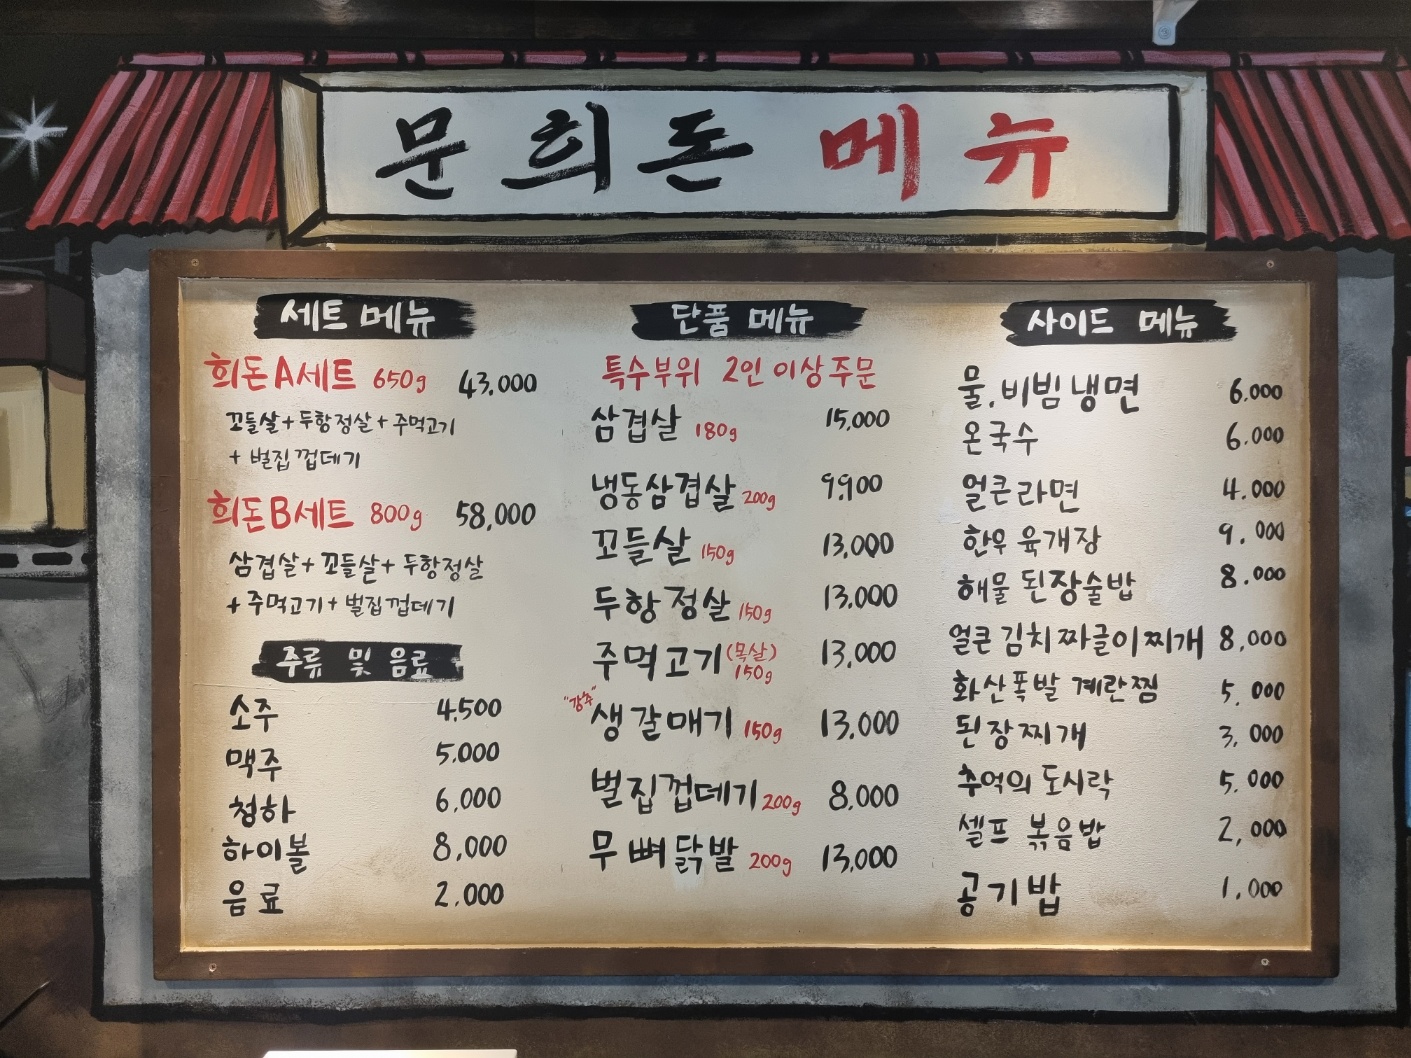 문희돈 메뉴
세트 메뉴
희돈A세트 650g 43,000
꼬들살+두항정살+주먹고기
+ 벌집껍데기
희돈B세트 800g 58,000
삼겹살+꼬들살+두항정살
+주먹고기+벌집껍데기
주류 및 음료
소주 4,500
맥주 5.000
청하 6,000
하이볼 8,000
음료 2.000
단품 메뉴
특수부위 2인이상주문
삼겹살 180g 15,000
냉동삼겹살 200g 9,900
꼬들살 150g 13,000
두항정살 150g 13,000
주먹고기(목살) 150g 13,000
"강추" 생갈매기 150g 13,000
벌집껍데기 200g 8,000
무뼈닭발 200g 13,000
사이드 메뉴
물.비빔냉면 6.000
온국수 6.000
얼큰라면 4.000
한우육개장 9.000
해물된장술밥 8.000
얼큰김치짜글이찌개 8,000
화산폭발 계란찜 5,000
된장찌개 3,000
추억의 도시락 5.000
셀프 볶음밥 2,000
공기밥 1.000